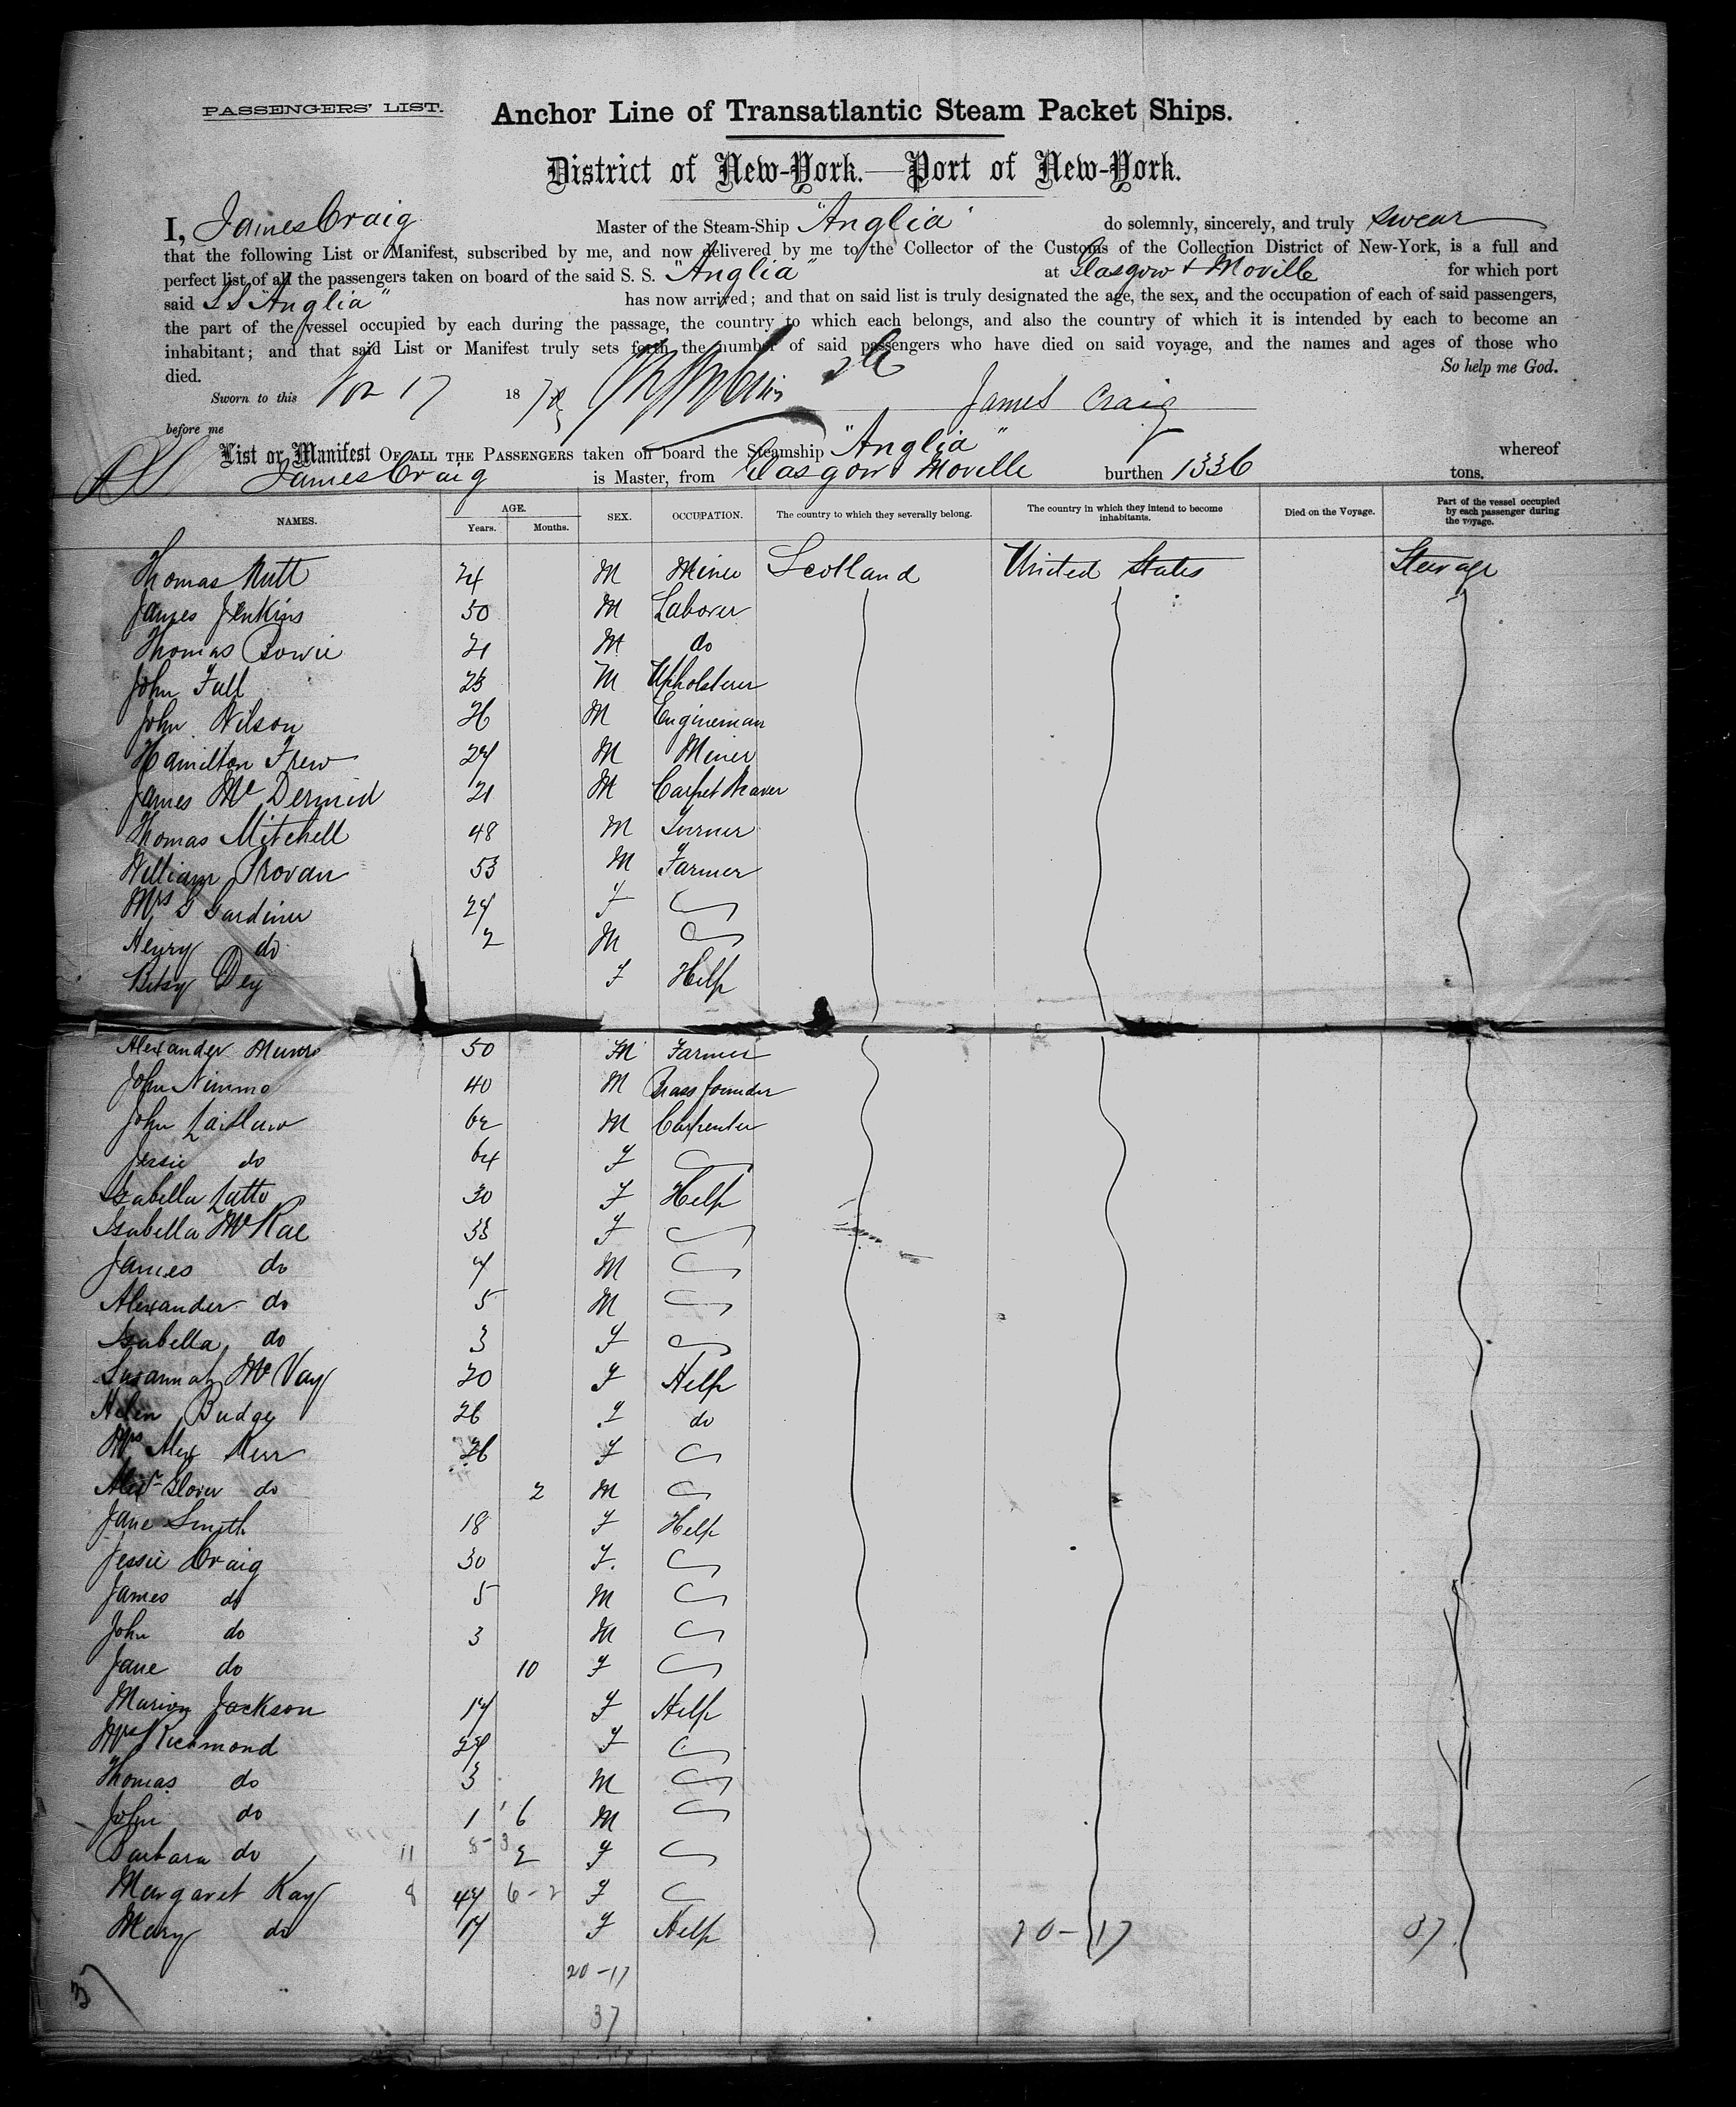 PASSENGERS' LIST.
Anchor Line of Transatlantic Steam Packet Ships.
District of New-York.—Port of New-York.
I, James Craig Master of the Steam-Ship "Anglia" do solemnly, sincerely, and truly swear
that the following List or Manifest, subscribed by me, and now delivered by me to the Collector of the Customs of the Collection District of New-York, is a full and
perfect list of all the passengers taken on board of the said S. S. "Anglia" at Glasgow & Moville for which port
said S S "Anglia" has now arrived; and that on said list is truly designated the age, the sex, and the occupation of each of said passengers,
the part of the vessel occupied by each during the passage, the country to which each belongs, and also the country of which it is intended by each to become an
inhabitant; and that said List or Manifest truly sets forth the number of said passengers who have died on said voyage, and the names and ages of those who
died. So help me God.
Sworn to this 17 18 James Craig
before me
List or Manifest OF ALL THE PASSENGERS taken on board the Steamship "Anglia" whereof
James Craig is Master, from Glasgow & Moville burthen 1336 tons.
NAMES. AGE. Years. Months. SEX. OCCUPATION. The country to which they severally belong. The country in which they intend to become inhabitants. Died on the Voyage. Part of the vessel occupied by each passenger during the voyage.
Thomas Nutt 24 M Miner Scotland United States Steerage
James Jenkins 50 M Laborer
Thomas Bowie 21 M do
John Full 23 M Upholsterer
John Wilson 26 M Engineman
Hamilton Frew 24 M Miner
James McDermid 21 M Carpet Weaver
Thomas Mitchell 48 M Turner
William Provan 53 M Farmer
Mrs G Gardiner 24 F
Henry do 2 M
Betsy Dey F Help
Alexander Munro 50 M Farmer
John Nimmo 40 M Brass founder
John Laidlaw 62 M Carpenter
Jessie do 64 F
Isabella Latto 30 F Help
Isabella McRae 33 F
James do 7 M
Alexander do 5 M
Isabella do 3 F
Susannah McVay 20 F Help
Helen Budge 26 F do
Mrs Alex Kerr 26 F
Alexr Glover do 2 M
Jane Smith 18 F Help
Jessie Craig 30 F.
James do 5 M
John do 3 M
Jane do 10 F
Marion Jackson 17 F Help
Mrs Richmond 24 F
Thomas do 3 M
John do 1 6 M
Barbara do 11 8-3 2 F
Margaret Kay 8 47 6-2 F
Mary do 17 F Help 20-17 37
37 20-17
37